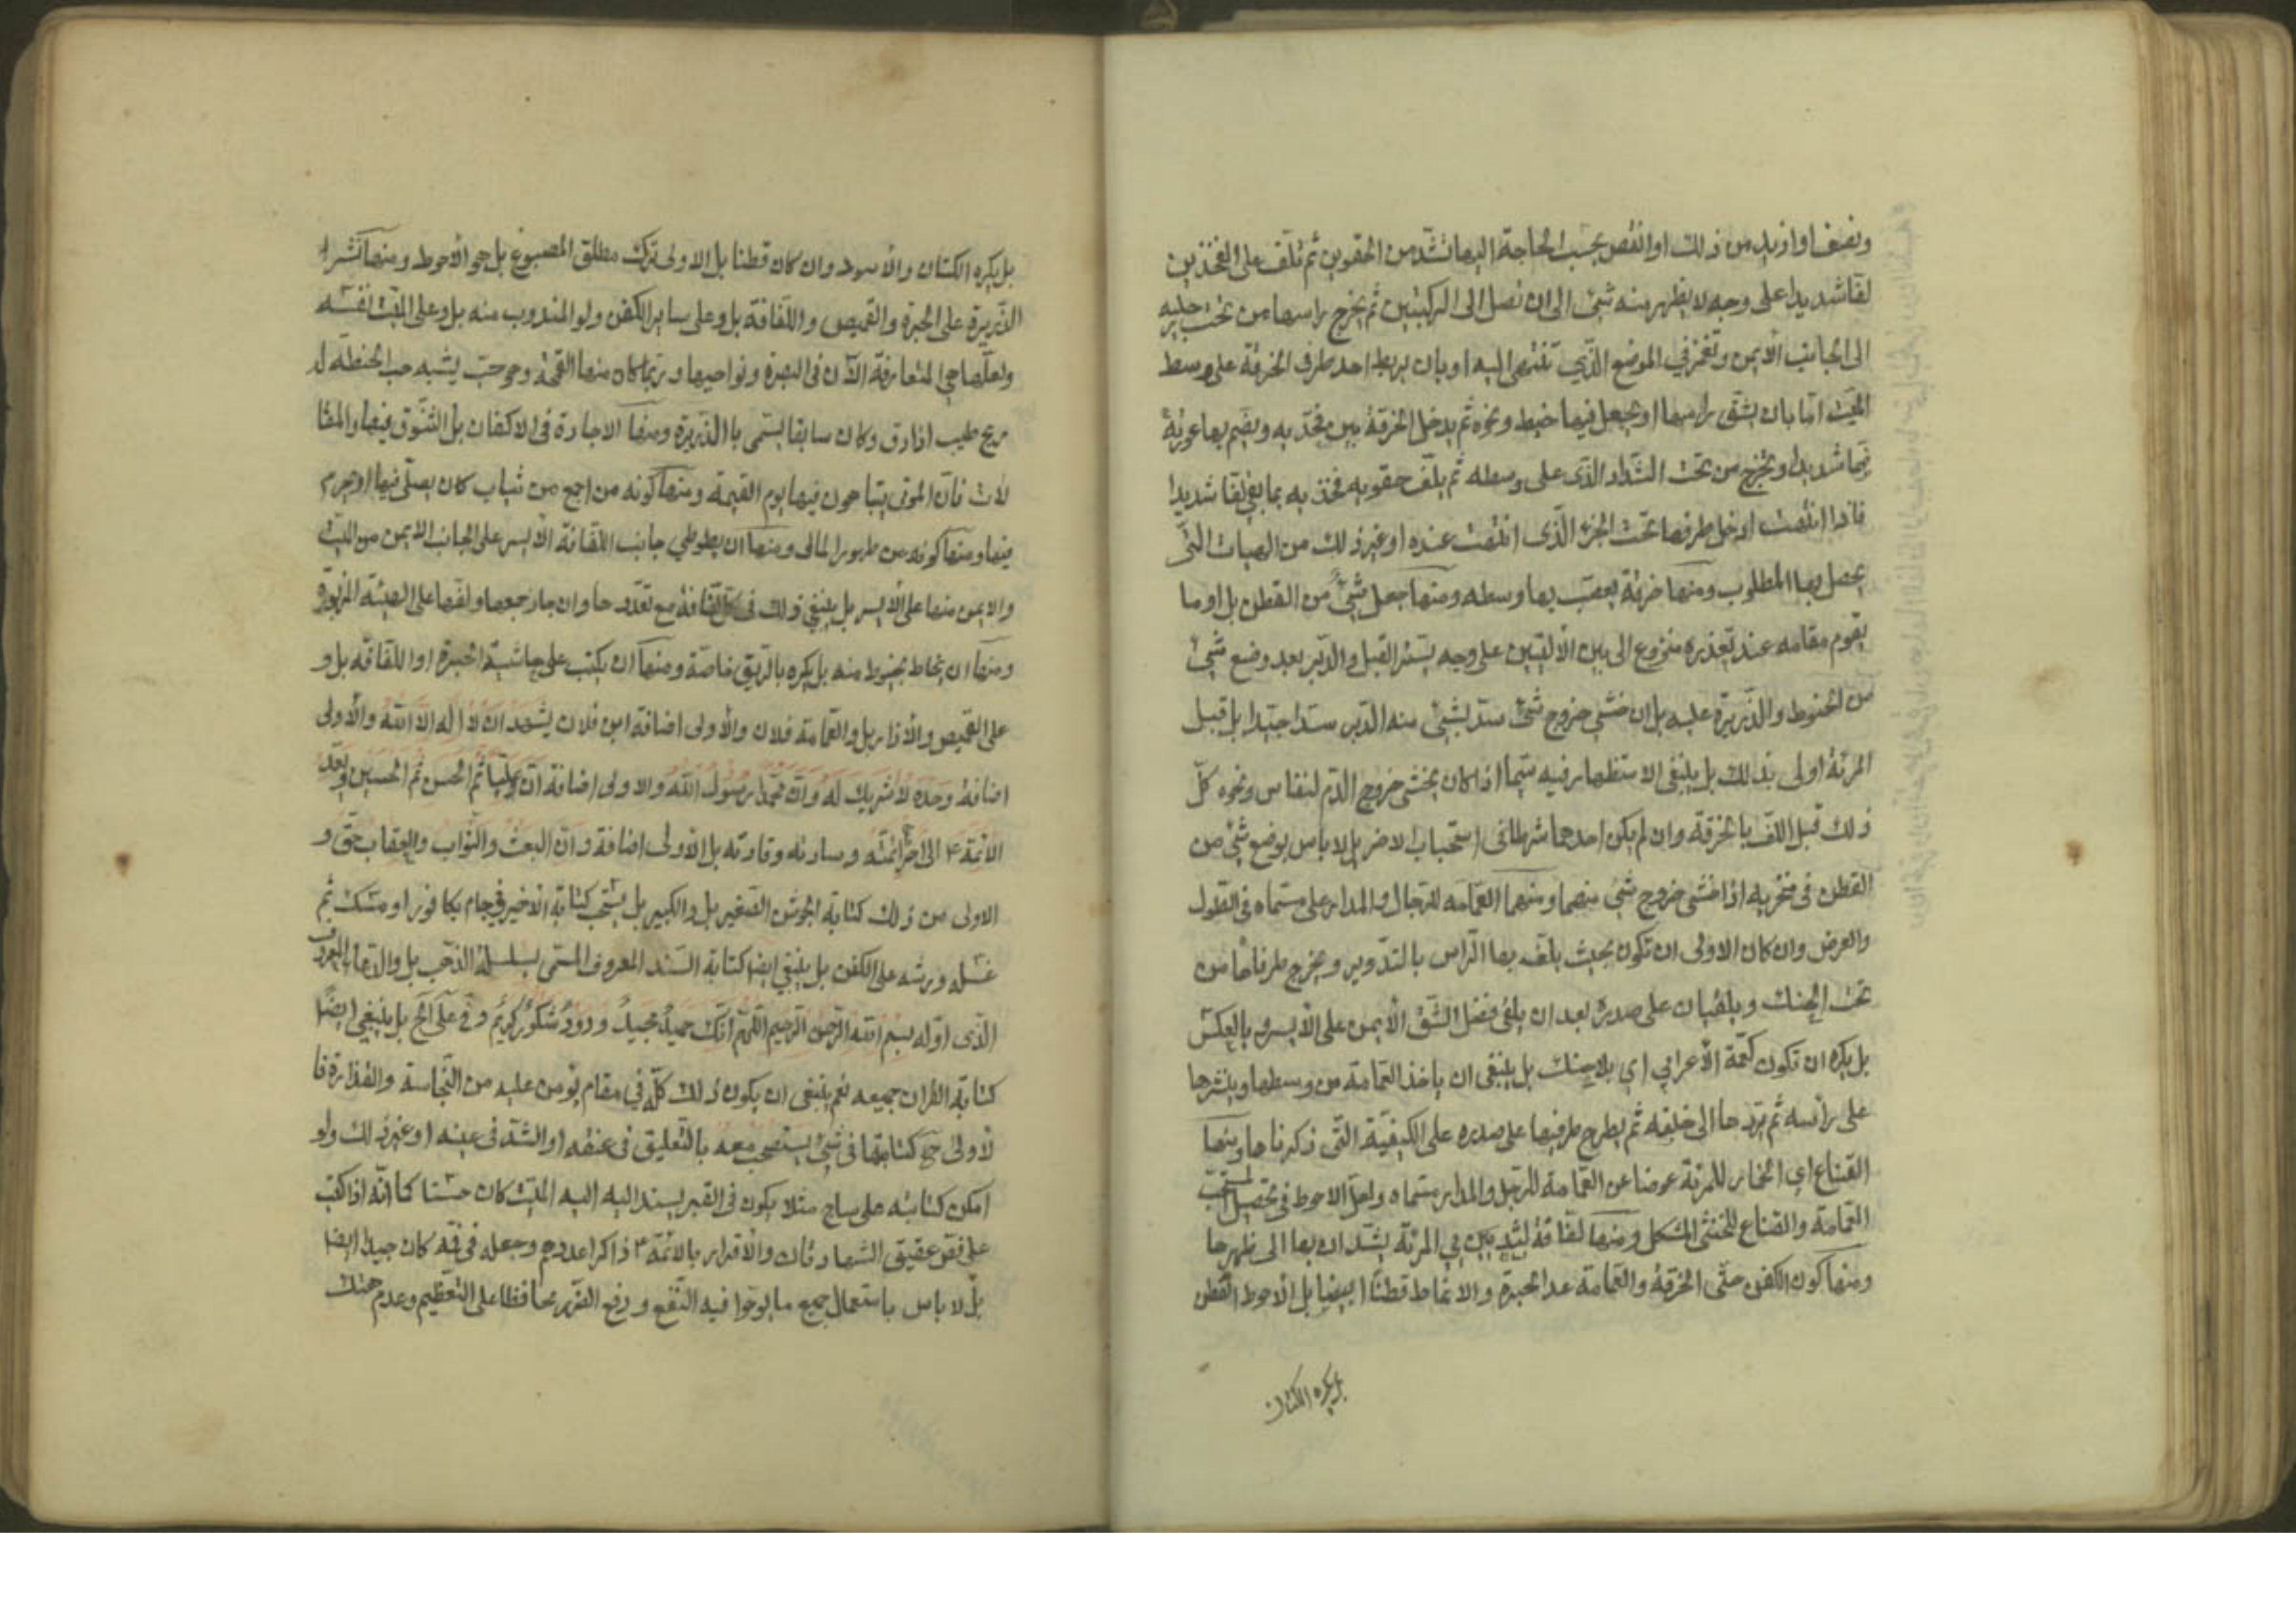 ونصف او ازيد من ذلك او انقص بحسب الحاجة اليها تشد من الحقوين ثم تلف على الفخذين
لفا شديدا على وجه لا يظهر منه شئ الى ان تصل الى الركبتين ثم يخرج راسها من تحت رجليه
الى الجانب الأيمن وتغمز في الموضع الذي تنتهى اليه او بان يربط احد طرفى الخرقة على وسط
الميت اما بان يشق راسها او يجعل فيها خيط ونحوه ثم يدخل الخرقة بين فخذيه ويضم بها عورته
ضما شديدا ويخرج من تحت الشداد الذى على وسطه ثم يلف حقويه فخذيه بما بقى لفا شديدا
فاذا انتهت ادخل طرفها تحت الجزء الذى انتهت عنده او غير ذلك من الهيات التى
يحصل بها المطلوب ومنها خرقة يعصب بها وسطه ومنها جعل شئ من القطن بل او ما
يقوم مقامه عند تعذره منزوع الى بين الأليتين على وجه يستر القبل والدبر بعد وضع شئ
من الحنوط والذريرة عليه بل ان خشى خروج شئ سد بشئ منه الدبر سدا جيدا بل قبل
المرئة اولى بذلك بل ينبغى الاستظهار فيه سيما اذا كان يخشى خروج الدم لنفاس ونحوه كل
ذلك قبل اللف بالخرقة وان لم يكن احدهما شرطا فى استحباب الاخر بل لا باس بوضع شئ من
القطن فى منخريه اذا خشى خروج شئ منهما ومنها العمامه للرجال والمدار على مسماه فى الطول
والعرض وان كان الاولى ان تكون بحيث يلف بها الراس بالتدوير ويخرج طرفاها من
تحت الحنك ويلقيان على صدره بعد ان يلقى فضل الشق الأيمن على الأيسر وبالعكس
بل يكره ان تكون كعمة الأعرابي اي بلا حنك بل ينبغى ان ياخذ العمامة من وسطها وينشرها
على رأسه ثم يردها الى خلفه ثم يطرح طرفيها على صدره على الكيفية التى ذكرناها ومنها
القناع اي الخمار للمرئة عوضا عن العمامة للرجل والمدار مسماه ولعل الاحوط فى تحصيل المستحب
العمامة والقناع للخنثى المشكل ومنها لفافة لثديين في المرئة يشدان بها الى ظهرها
ومنها كون الكفن حتى الخرقة والعمامة عدا الحبرة والانماط قطنا ابيضا بل الأحوط القطن
بل يكره الكتان
بل يكره الكتان والأسود وان كان قطنا بل الاولى ترك مطلق المصبوغ بل هو الأحوط ومنها نشر
الذريرة على الحبرة والقميص واللفافة بل وعلى ساير الكفن ولو المندوب منه بل وعلى الميت نفسه
ولعلها هي المتعارفة الآن فى البصرة ونواحيها وربما كان منها القمحة وهو حب يشبه حب الحنطة له
ريح طيب اذا دق وكان سابقا يسمى بالذريرة ومنها الاجادة فى الاكفان بل التنوق فيها والمغا
لات فان الموتى يتباهون فيها يوم القيمة ومنها كونه من اجمع من ثياب كان يصلى فيها او يحرم
فيها ومنها كونه من طهور المال ومنها ان يطوطي جانب اللفافة الأيسر على الجانب الايمن من الميت
والايمن منها على الأيسر بل ينبغى ذلك فى كل لفافة مع تعددها وان جاز جمعها ولفها على الهيئة المزبورة
ومنها ان يخاط بخيوط منه بل يكره بالريق خاصة ومنها ان يكتب على حاشية الحبرة او اللفافة بل و
على القميص والأزار بل والعمامة فلان والأولى اضافة ابن فلان يشهد ان لا اله الا الله والأولى
اضافة وحده لا شريك له وان محمدا رسول الله والاولى اضافة ان عليا ثم الحسن ثم الحسين وبعد
الائمة ع الى اخر أئمته وسادته وقادته بل الأولى اضافة وان البعث والثواب والعقاب حق و
الاولى من ذلك كتابة الجوشن الصغير بل والكبير بل يستحب كتابة الأخير في جام بكافور او مسك ثم
غسله ورشه على الكفن بل ينبغي ايضا كتابة السند المعروف المسمى بسلسلة الذهب بل والدعاء المعروف
الذى اوله بسم الله الرحمن الرحيم اللهم انك حميد مجيد ودود شكور كريم وفي على الخ بل ينبغي ايضا
كتابة القران جميعه نعم ينبغى ان يكون ذلك كله في مقام يؤمن عليه من النجاسة والقذارة فا
لأولى ح كتابتها فى شئ يستصحب معه بالتعليق فى عنقه او الشد فى عينه او غير ذلك ولو
امكن كتابته على ساج مثلا يكون فى القبر يسند اليه اليه الميت كان حسنا كما أنه اذا كتب
على فص عقيق الشهادتان والأقرار بالائمة ع ذاكرا عددهم وجعله فى فمه كان جيدا ايضا
بل لا باس باستعمال جميع ما يرجوا فيه النفع ودفع الضرر محافظا على التعظيم وعدم هتك